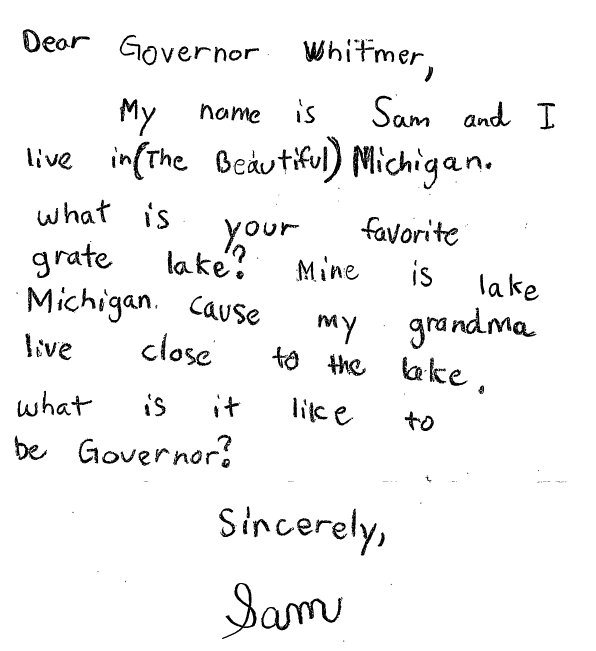 Dear Governor Whitmer,
My name is Sam and I
live in (The Beautiful) Michigan.
what is your favorite
grate lake? Mine is lake
Michigan. cause my grandma
live close to the lake.
what is it like to
be Governor?
Sincerely,
Sam